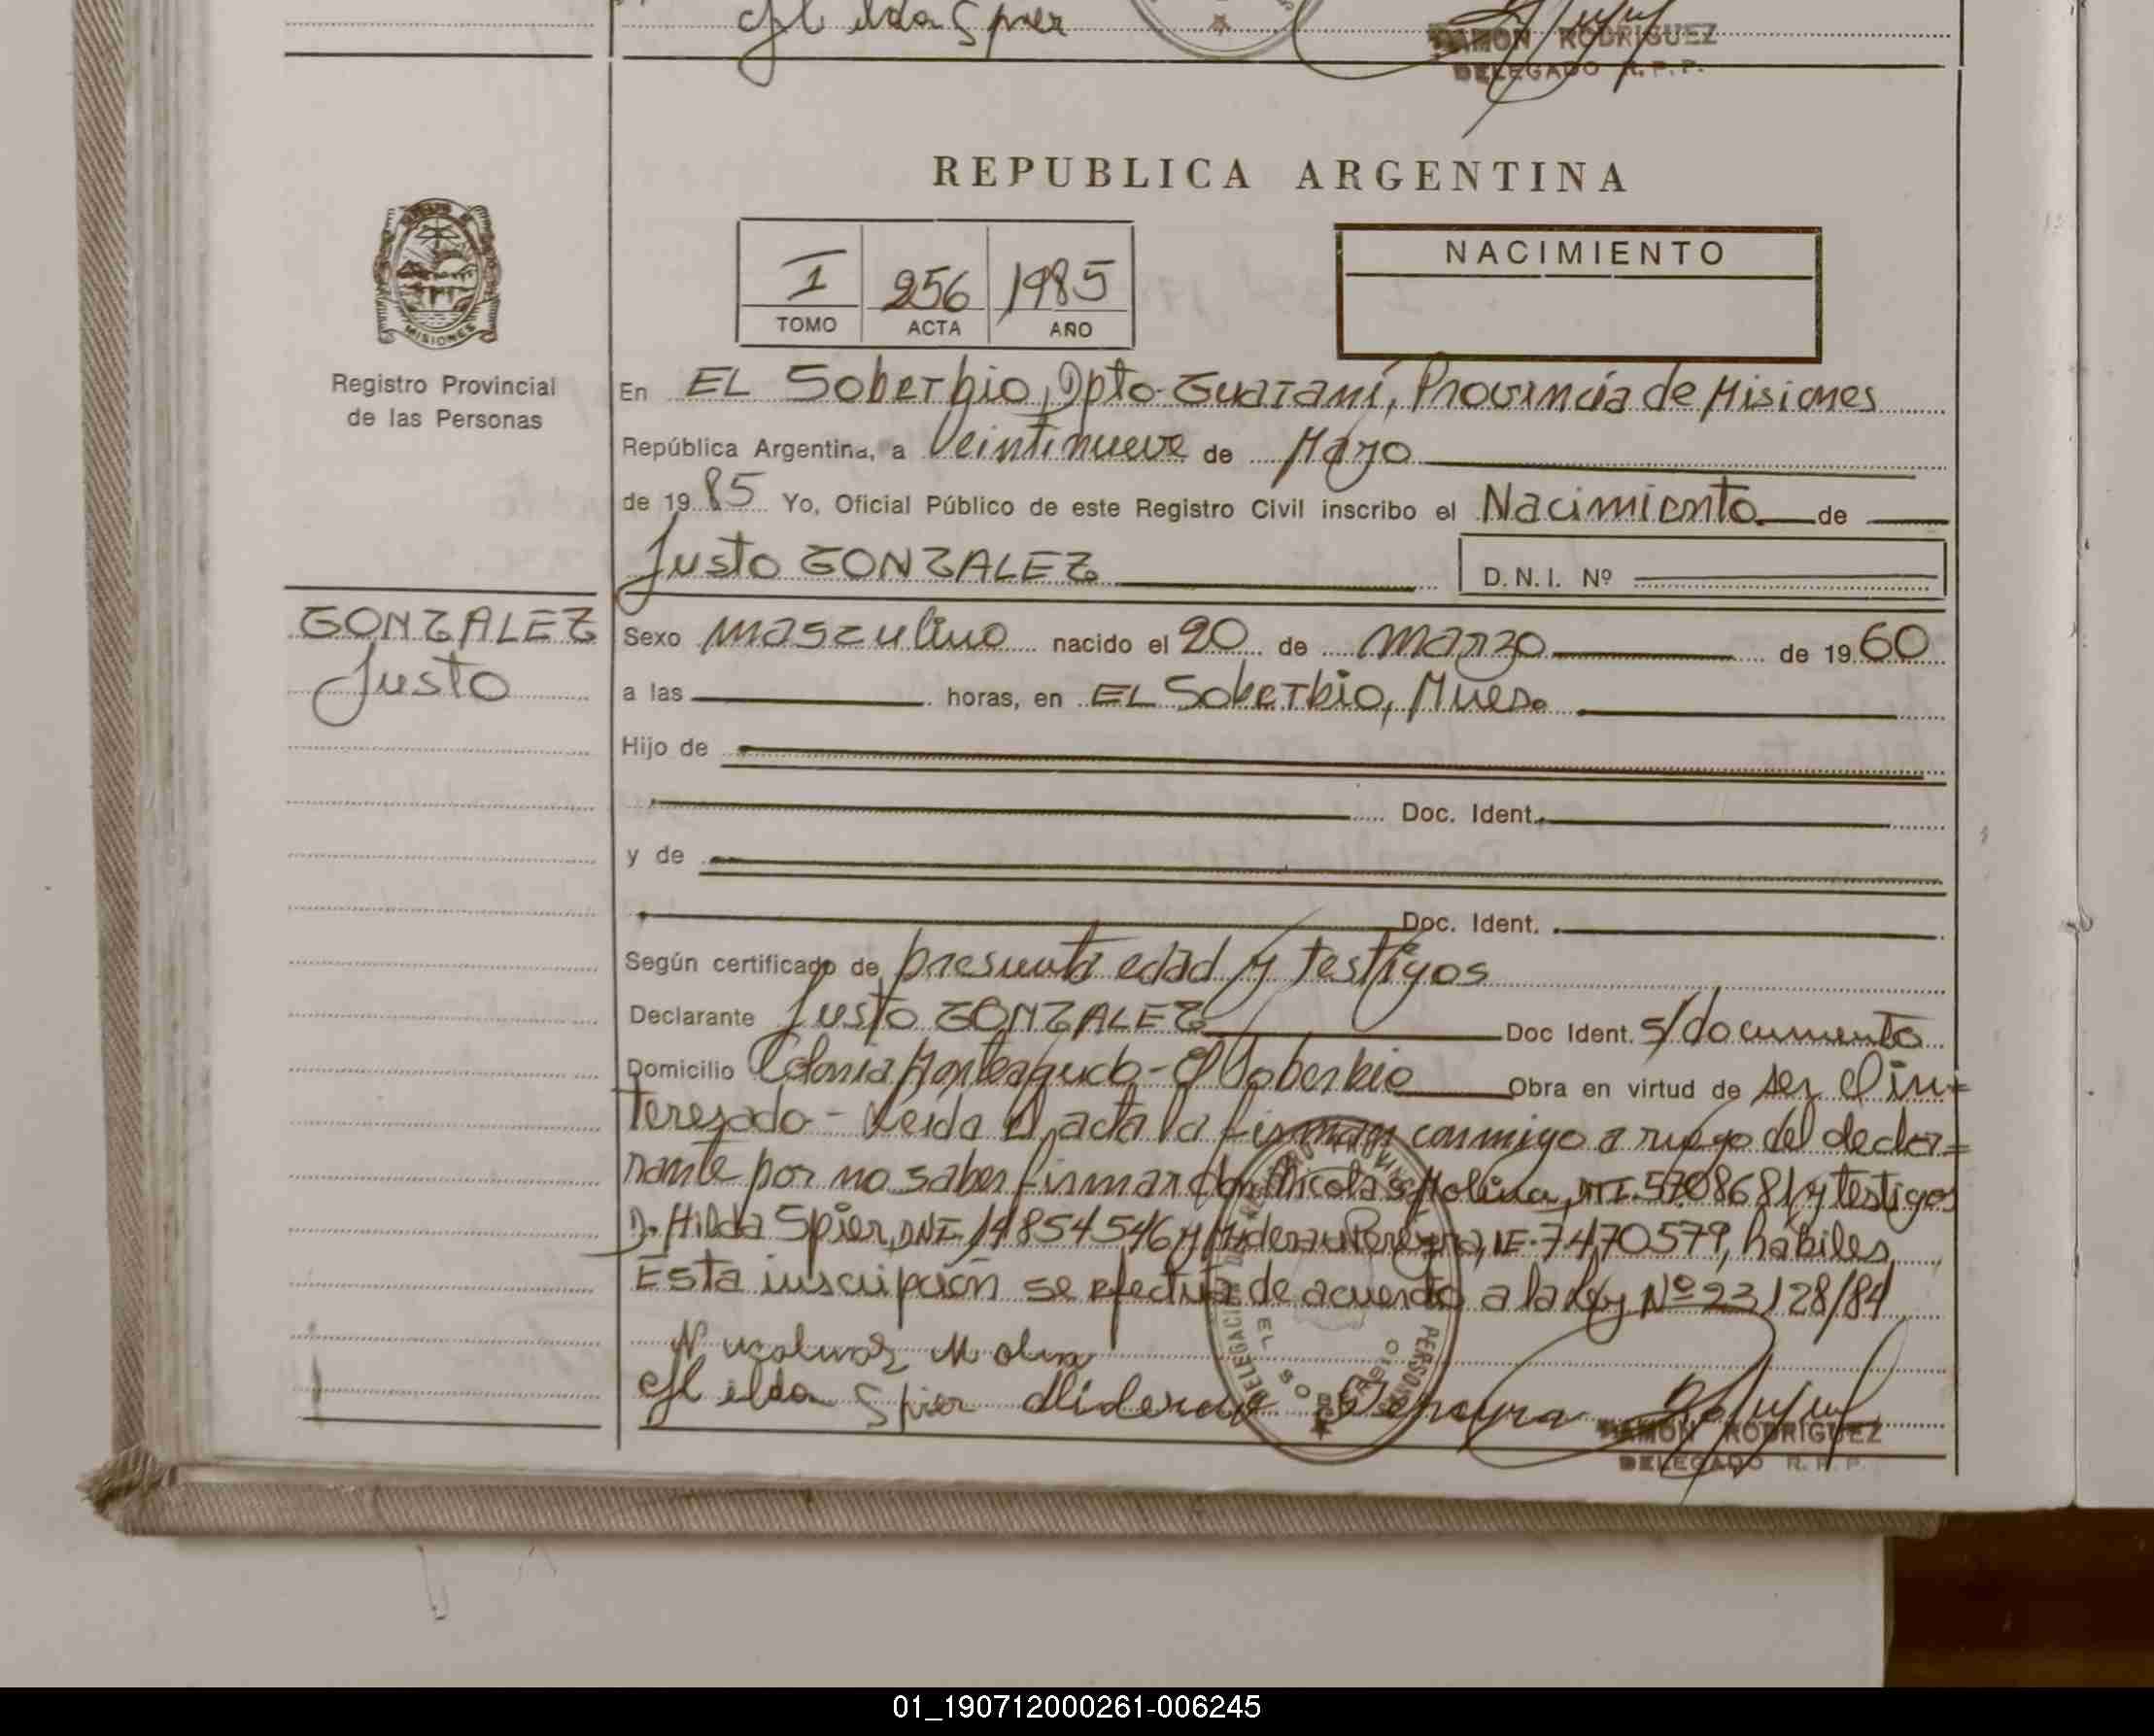 Hilda Spier
RAMON RODRIGUEZ
DELEGADO R. P. P.
REPUBLICA ARGENTINA
MISIONES
Registro Provincial
de las Personas
I 256 1985
TOMO ACTA AÑO
NACIMIENTO
En EL Soberbio, Dpto. Guaraní, Provincia de Misiones
República Argentina, a Veintinueve de Mayo
de 1985 Yo, Oficial Público de este Registro Civil inscribo el Nacimiento de
Justo GONZALEZ
D.N.I. Nº
GONZALEZ
Justo
Sexo masculino nacido el 20 de marzo de 1960
a las horas, en EL Soberbio, Mnes.
Hijo de
Doc. Ident.
y de
Doc. Ident.
Según certificado de presunta edad y testigos
Declarante Justo GONZALEZ Doc Ident. s/documento
Domicilio Colonia Monteagudo - El Soberbio Obra en virtud de ser el in=
teresado - Leida el acta la firman conmigo a ruego del decla=
rante por no saber firmar don Nicolas Molina, MI. 5708681 y testigos
D. Hilda Spier, DNI. 14854546 y Pereyra, LE. 7470579, hábiles
Esta inscripción se efectúa de acuerdo a la Ley Nº 23128/84
Molina
Hilda Spier Pereyra
RAMON RODRIGUEZ
DELEGADO R. P. P.
01_190712000261-006245